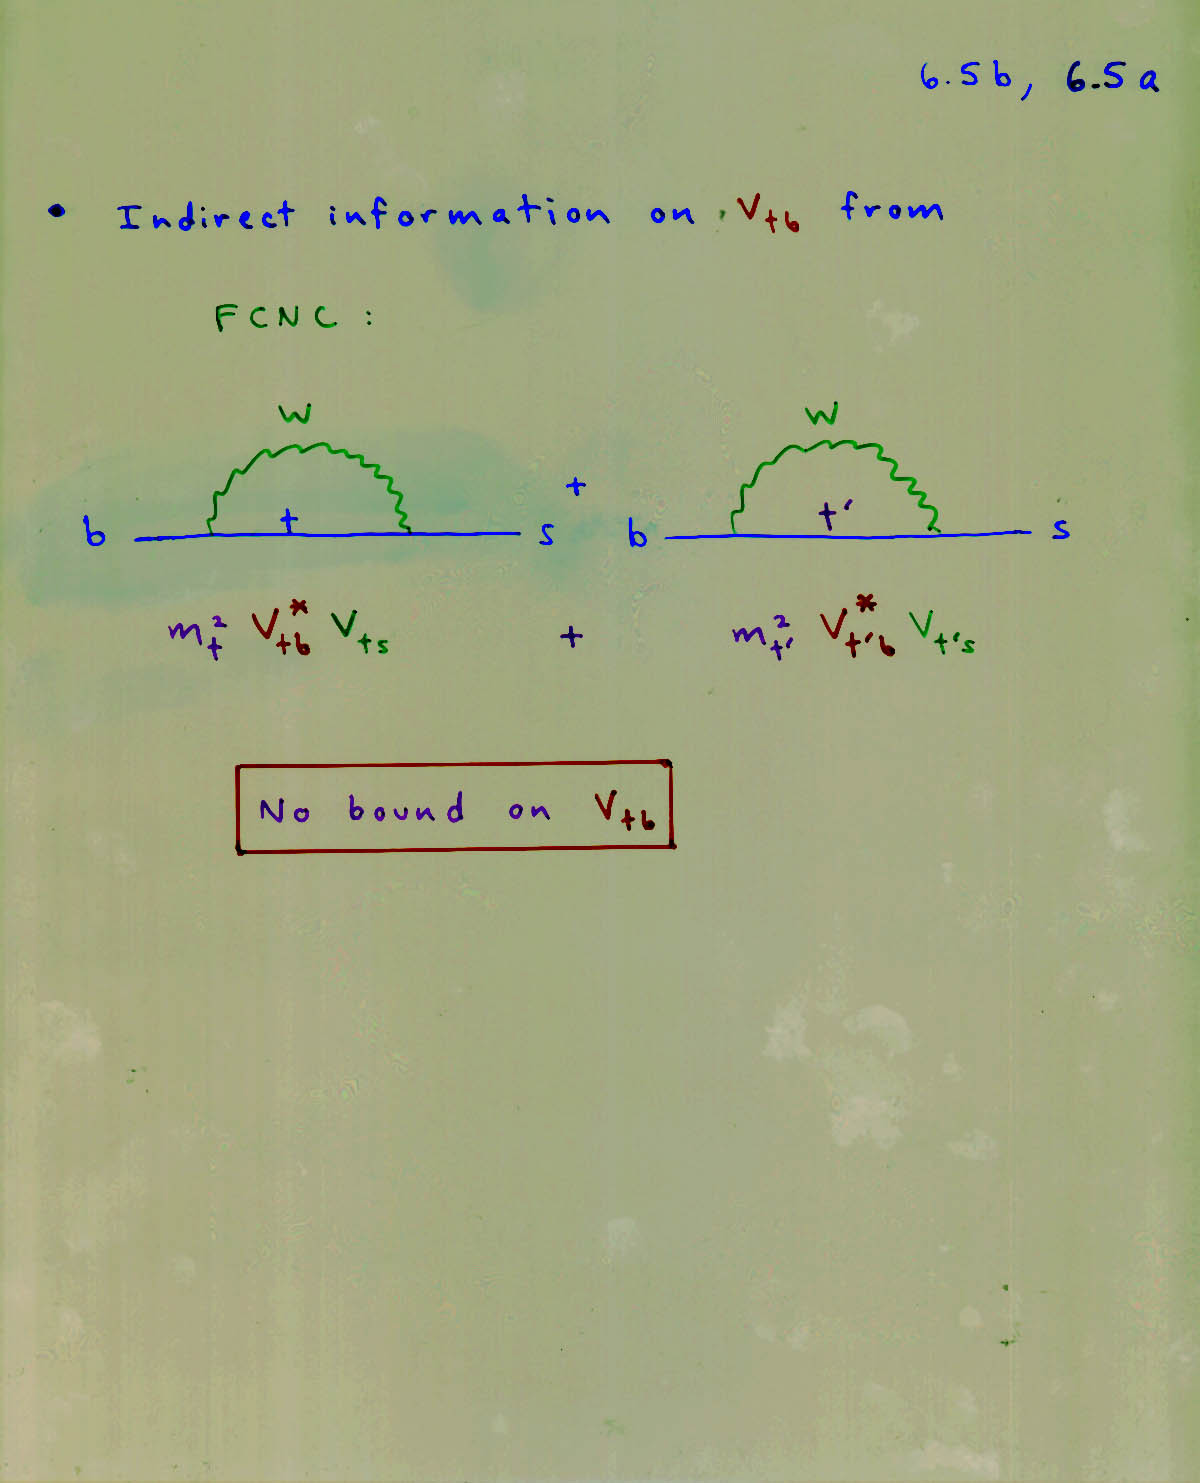 6.5b, 6.5a
• Indirect information on V_tb from
FCNC :
W W
b t s + b t' s
m_t^2 V_tb^* V_ts + m_t'^2 V_t'b^* V_t's
No bound on V_tb